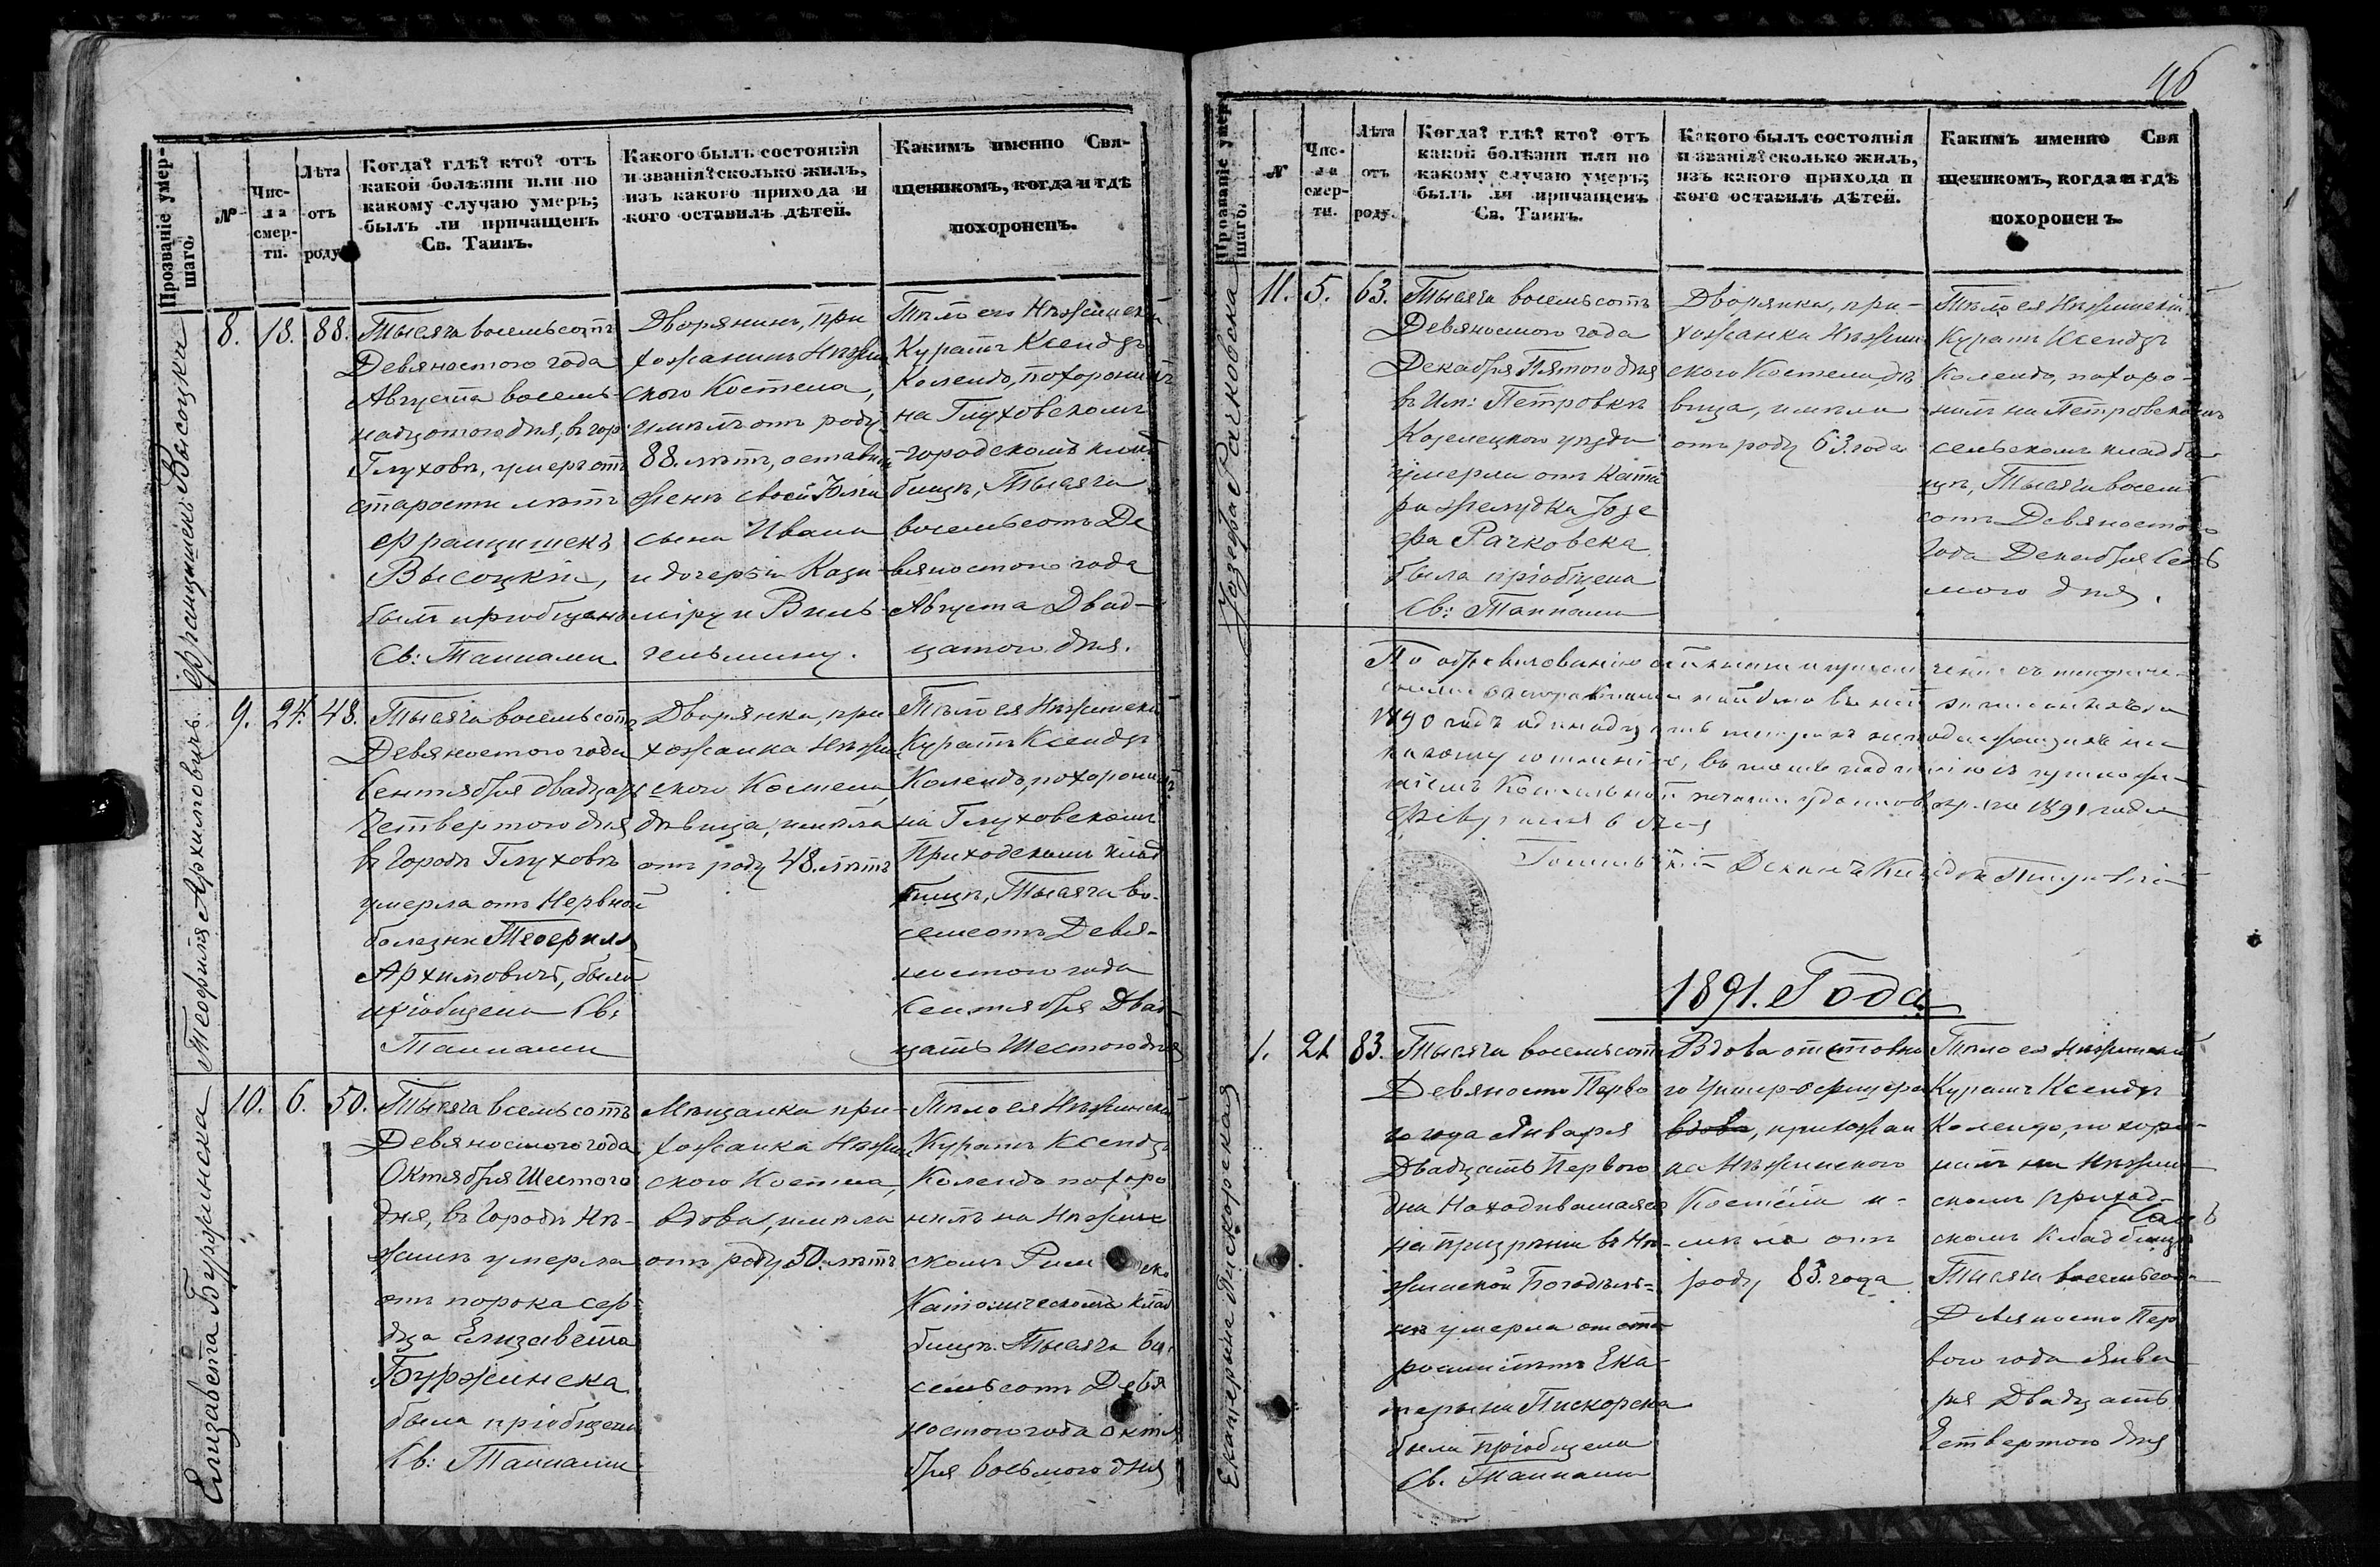 Прозваніе умер-
шаго.
№
Чис-
ла
смер-
ти.
Лѣта
отъ
роду
Когда? гдѣ? кто? отъ
какой болѣзни или по
какому случаю умеръ;
былъ ли причащенъ
Св. Таинъ.
Какого былъ состоянія
и званія? сколько жилъ,
изъ какого прихода и
кого оставилъ дѣтей.
Какимъ именно Свя-
щенникомъ, когда и гдѣ
похороненъ.
Францишекъ Высоцка
8.
18.
88.
Тысяча восемьсотъ
Девяностого года
Августа восем-
надцатого дня, въ гор:
Глуховѣ, умеръ отъ
старости лѣтъ
Францишекъ
Высоцкій,
былъ пріобщенъ
Св: Тайнами.
Дворянинъ, при
хожанинъ Нѣжин
ского Костела,
имѣлъ отъ роду
88. лѣтъ, оставилъ
женѣ своей Юліи
сына Ивана
и дочерей Кази-
міру и Виль-
гельмину.
Тѣло его Нѣжинскій
Куратъ Ксендзъ
Колендо, похоронилъ
на Глуховскомъ
городскомъ клад
бищѣ, Тысяча
восемьсотъ Де
вяностого года
Августа Двад-
цатого дня.
Теофилія Архимовичъ.
9.
24.
48.
Тысяча восемьсотъ
Девяностого года
Сентября двадцать
Четвертого дня
въ Городѣ Глуховѣ
умерла отъ Нервной
болезни Теофилія
Архимовичъ, была
пріобщена Св:
Тайнами
Дворянка, при
хожанка Нѣжин
ского Костела,
дѣвица, имѣла
отъ роду 48. лѣтъ
Тѣло ея Нѣжинскій
Куратъ Ксендзъ
Колендо, похоронилъ
на Глуховскомъ
Приходскомъ клад
бищѣ, Тысяча во-
семсотъ Девя-
ностого года
Сентября Двад-
цать Шестого дня
Елизавета Буржинска
10.
6.
50.
Тысяча всемьсотъ
Девяностого года
Октября Шестого
дня, въ Городѣ Нѣ-
жинѣ умерла
отъ порока сер-
дца Елизавета
Буржинска
была пріобщена
Св: Тайнами
Мѣщанка при-
хожанка Нѣжин
ского Костела,
вдова, имѣла
отъ роду 50. лѣтъ
Тѣло ея Нѣжинскій
Куратъ Ксендзъ
Колендо похоро
нилъ на Нѣжин
скомъ Рим ско
Католическомъ клад
бищѣ. Тысяча во
семьсотъ Девя
ностого года Октя
бря восьмого дня
46
Прозваніе умер-
шаго.
№
Чис-
ла
смер-
ти.
Лѣта
отъ
роду.
Когда? гдѣ? кто? отъ
какой болѣзни или по
какому случаю умеръ;
былъ ли причащенъ
Св. Таинъ.
Какого былъ состоянія
и званія? сколько жилъ,
изъ какого прихода и
кого оставилъ дѣтей.
Какимъ именно Свя
щенникомъ, когда и гдѣ
похороненъ.
Іозефа Рачковска
11.
5.
63.
Тысяча восемьсотъ
Девяностого года
Декабря Пятого дня
въ Им: Петровкѣ
Козелецкого уѣзда
умерла отъ Ката
ра желудка Іозе
фа Рачковска
была пріобщена
Св: Тайнами
Дворянка, при-
хожанка Нѣжин
ского Костела, дѣ
вица, имѣла
отъ роду 63. года
Тѣло ея Нѣжинскій
Куратъ Ксендзъ
Колендо, похоро-
нилъ на Петровскомъ
сельскомъ кладби
щѣ, Тысяча восемь
сотъ Девяностого
года Декабря Седь
мого дня.
1890 годъ одинадцать
1891 года
Февраля 6 дня
Деканъ Ксендзъ
1891. Года
Екатерина Пискорская
1.
21
83.
Тысяча восемьсотъ
Девяносто Перво
го года Января
Двадцать Первого
дня Находившаяся
на призрѣніи въ Нѣ-
жинской Богадѣль-
нѣ умерла отъ ста-
рости лѣтъ Ека-
терина Пискорска
была пріобщена
Св. Тайнами
Вдова отставно
го Унтер-офицера
вдова, прихожан
ка Нѣжинского
Костёла и-
мѣла отъ
роду 83. года
Тѣло ея Нѣжинскій
Куратъ Ксендзъ
Колендо, похоро-
нилъ на Нѣжин-
скомъ приход-
скомъ Кладбищѣ
Тысяча восемьсотъ
Девяносто Пер
вого года Янва
ря Двадцать
Четвертого дня